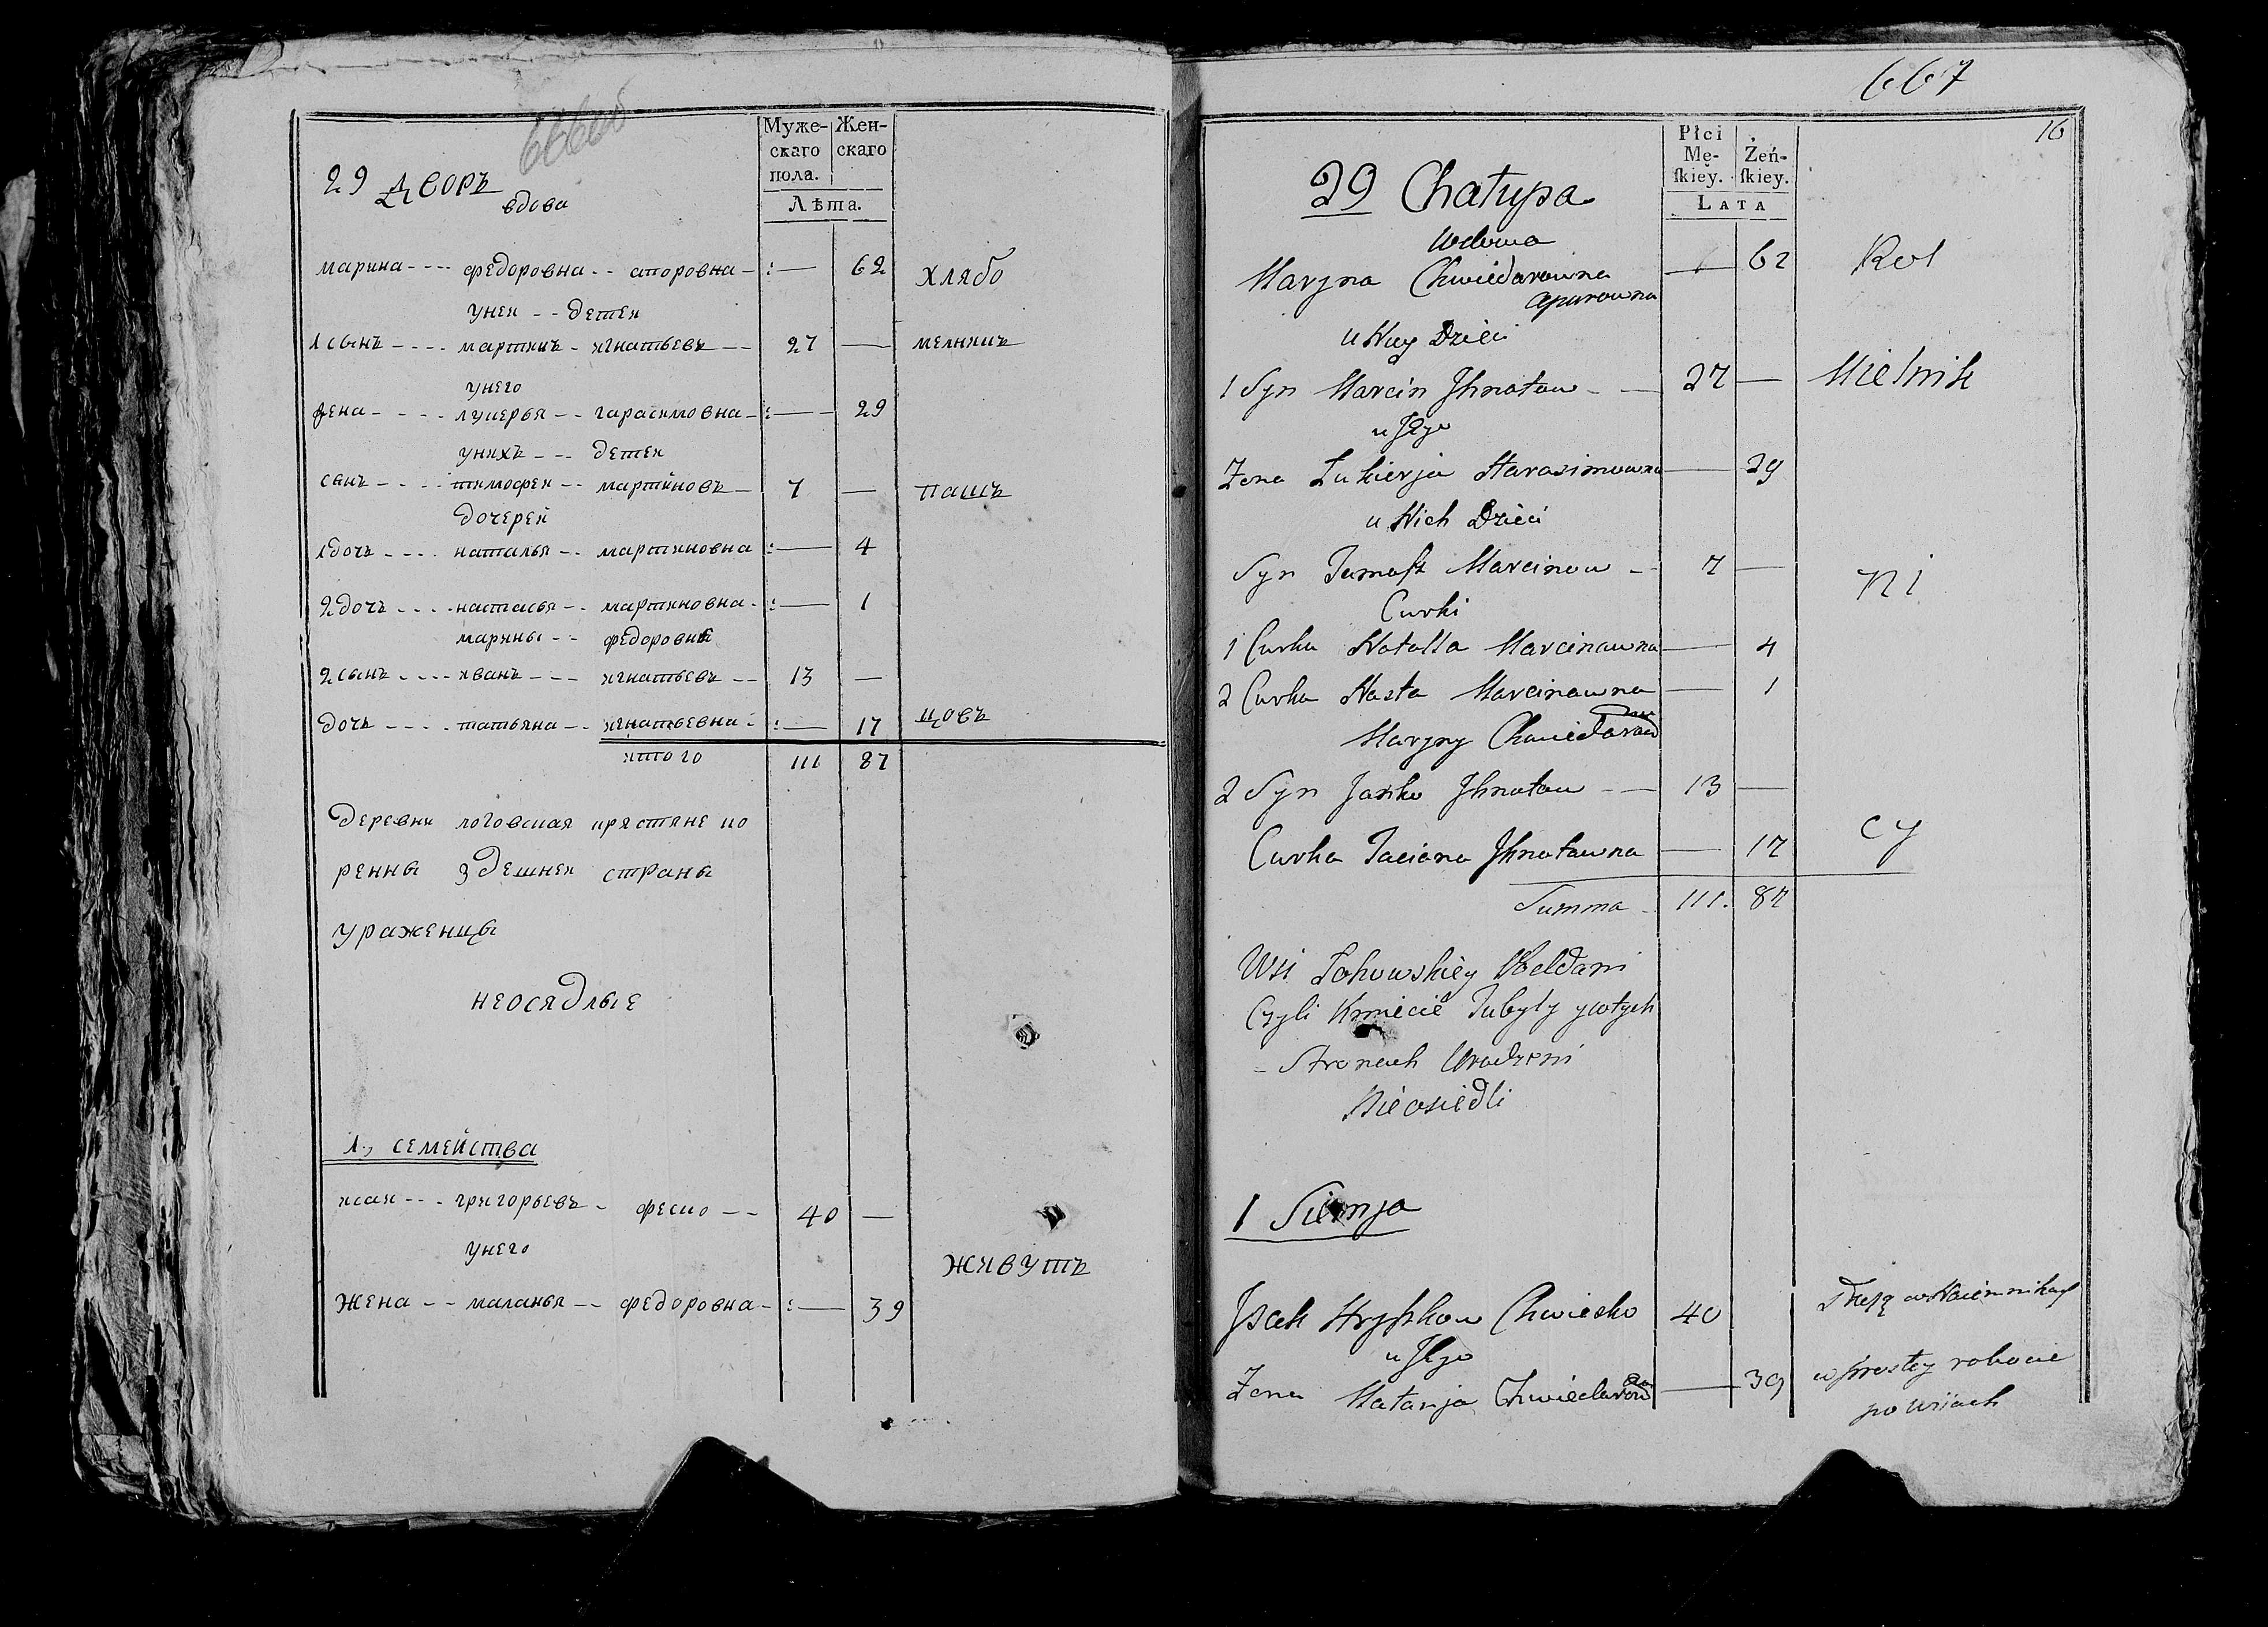 Муже-
скаго
пола.
Жен-
скаго
Лѣта.
29 дворъ
вдова
марина ---- федоровна -- апоровна - :— 62 хлябо
унея -- детея
1 сынъ ---- мартинъ - игнатьевъ -- 27 — мелникъ
унего
жена ---- лукерья -- гарасимовна - :— 29
унихъ --- детея
сынъ ---- тимофей -- мартиновъ - 7 — пашъ
дочерей
1 дочь ---- наталья -- мартиновна :— 4
2 дочь ---- настасья -- мартиновна - :— 1
марины -- федоровне
2 сынъ ---- иванъ --- игнатьевъ -- 13 —
дочь ---- татьяна -- игнатьевна - :— 17 цовъ
итого 111 87
деревни логовская крястяне ко
ренны здешнея страны
ураженцы
неосядлые
1, семейства
исак --- григорьевъ - феско -- 40 —
унего
живутъ
жена -- маланья -- федоровна - :— 39
667
16
Płci
Mę-
skiey.
Żeń-
skiey.
LATA
29 Chałupa
Wdowa
Maryna Chwiedarowna — 62 Rol
Apurowna
u Niey Dzieci
1 Syn Marcin Jhnatow - — 27 — Mielnik
u Jego
Zona Łukierja Harasimowna — 29
u Nich Dzieci
Syn Tamosz Marcinow - 7 — ni
Curki
1 Curka Natalla Marcinawna — 4
2 Curka Nasta Marcinawna — 1
Maryny Chwiedarow
2 Syn Janko Jhnatow - — 13 —
Curka Taciana Jhnatawna — 17 cy
Summa - 111. 87
Wsi Łohowskiey
Czyli Kmiecie Tubyly ywtych
- Stronach Urodzeni
Nieosiedli
1 Siemja
Jsak Hryszkow Chwiesko 40
u Jego
Zona Małanja Chwiedarow — 39 w prostey robocie
po Wsiach